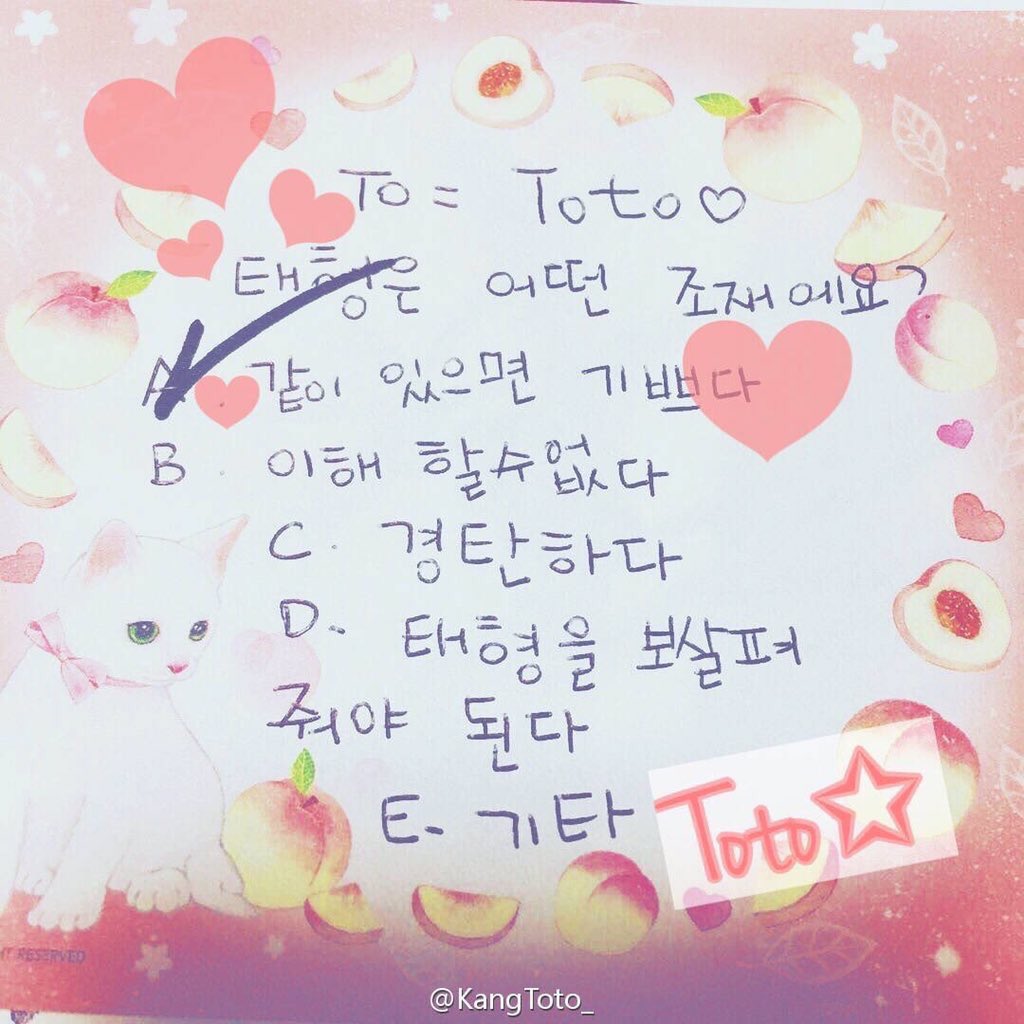 To = Toto♡
태형은 어떤 조재에요?
A. 같이 있으면 기쁘다
B. 이해 할수없다
C. 경탄하다
D. 태형을 보살펴
줘야 된다
E. 기타
Toto☆
RESERVED
@KangToto_